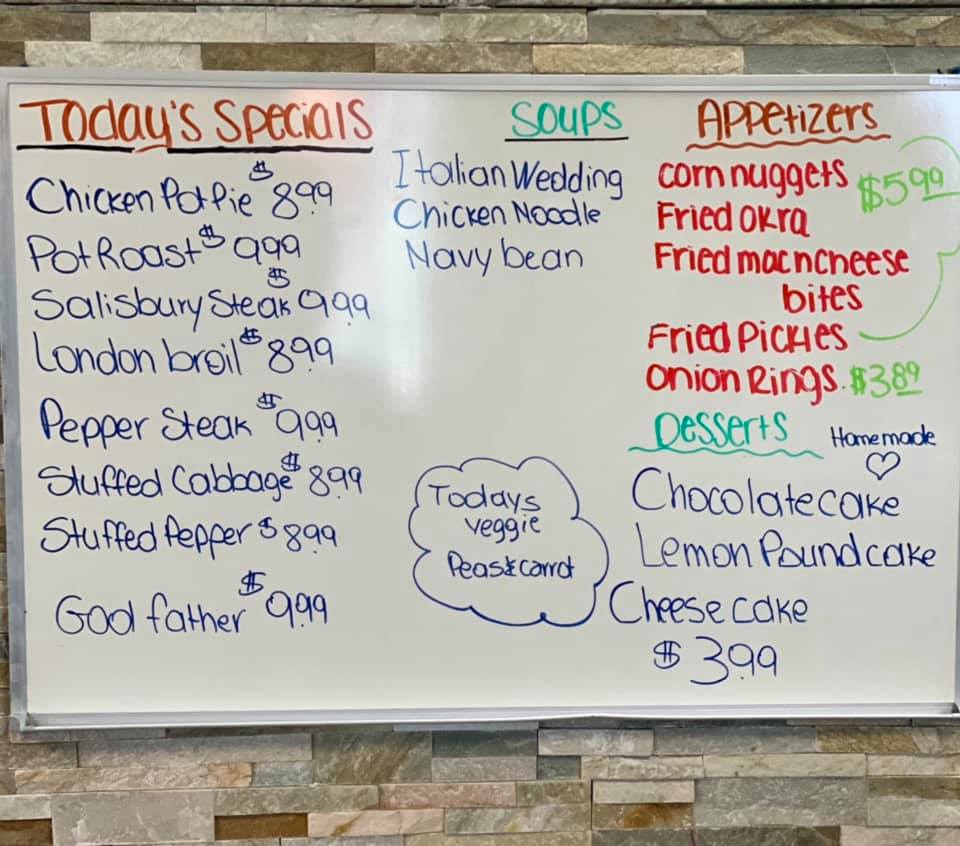 Today's Specials
Chicken Pot Pie $8.99
Pot Roast $9.99
Salisbury Steak $9.99
London broil $8.99
Pepper Steak $9.99
Stuffed Cabbage $8.99
Stuffed Pepper $8.99
God father $9.99
Soups
Italian Wedding
Chicken Noodle
Navy bean
Todays
veggie
Peas & carrot
Appetizers
corn nuggets $5.99
Fried okra
Fried mac n cheese
bites
Fried Pickles
onion Rings. $3.89
Desserts Homemade
Chocolate cake
Lemon Pound cake
Cheese cake
$3.99